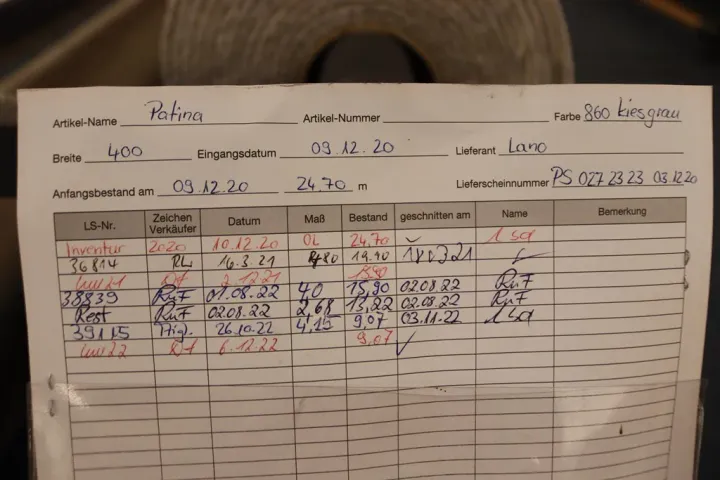 Artikel-Name Patina Artikel-Nummer Farbe 860 kiesgrau
Breite 400 Eingangsdatum 09.12.20 Lieferant Lano
Anfangsbestand am 09.12.20 24.70 m Lieferscheinnummer PS 027 23 23 03.12.20
LS-Nr. Zeichen Verkäufer Datum Maß Bestand geschnitten am Name Bemerkung
Inventur 2020 10.12.20 OL 24.70
36814 RL 16.3.21 19.90
Inv 21 2.12.21 19.90
38839 RuF 01.08.22 40 15,90 02.08.22 RuF
Rest RuF 02.08.22 2,68 13,22 02.08.22 RuF
39115 26.10.22 4,15 9,07 03.11.22
Inv 22 6.12.22 9,07